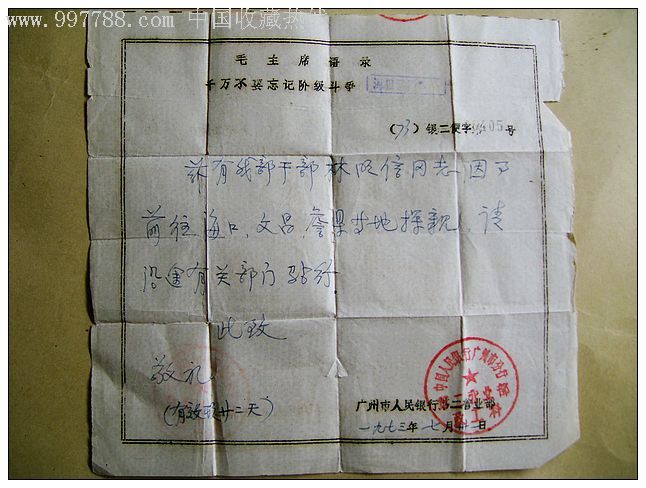 www.997788.com 中国收藏热线
毛主席语录
千万不要忘记阶级斗争
(73)银二便字 05号
兹有我部干部林明信同志因事
前往海口、文昌、 等地探亲,请
沿途有关部门验行.
此致
敬礼
(有效期廿二天)
中国人民银行广州市分行
广州市人民银行第二营业部
一九七三年七月廿一日